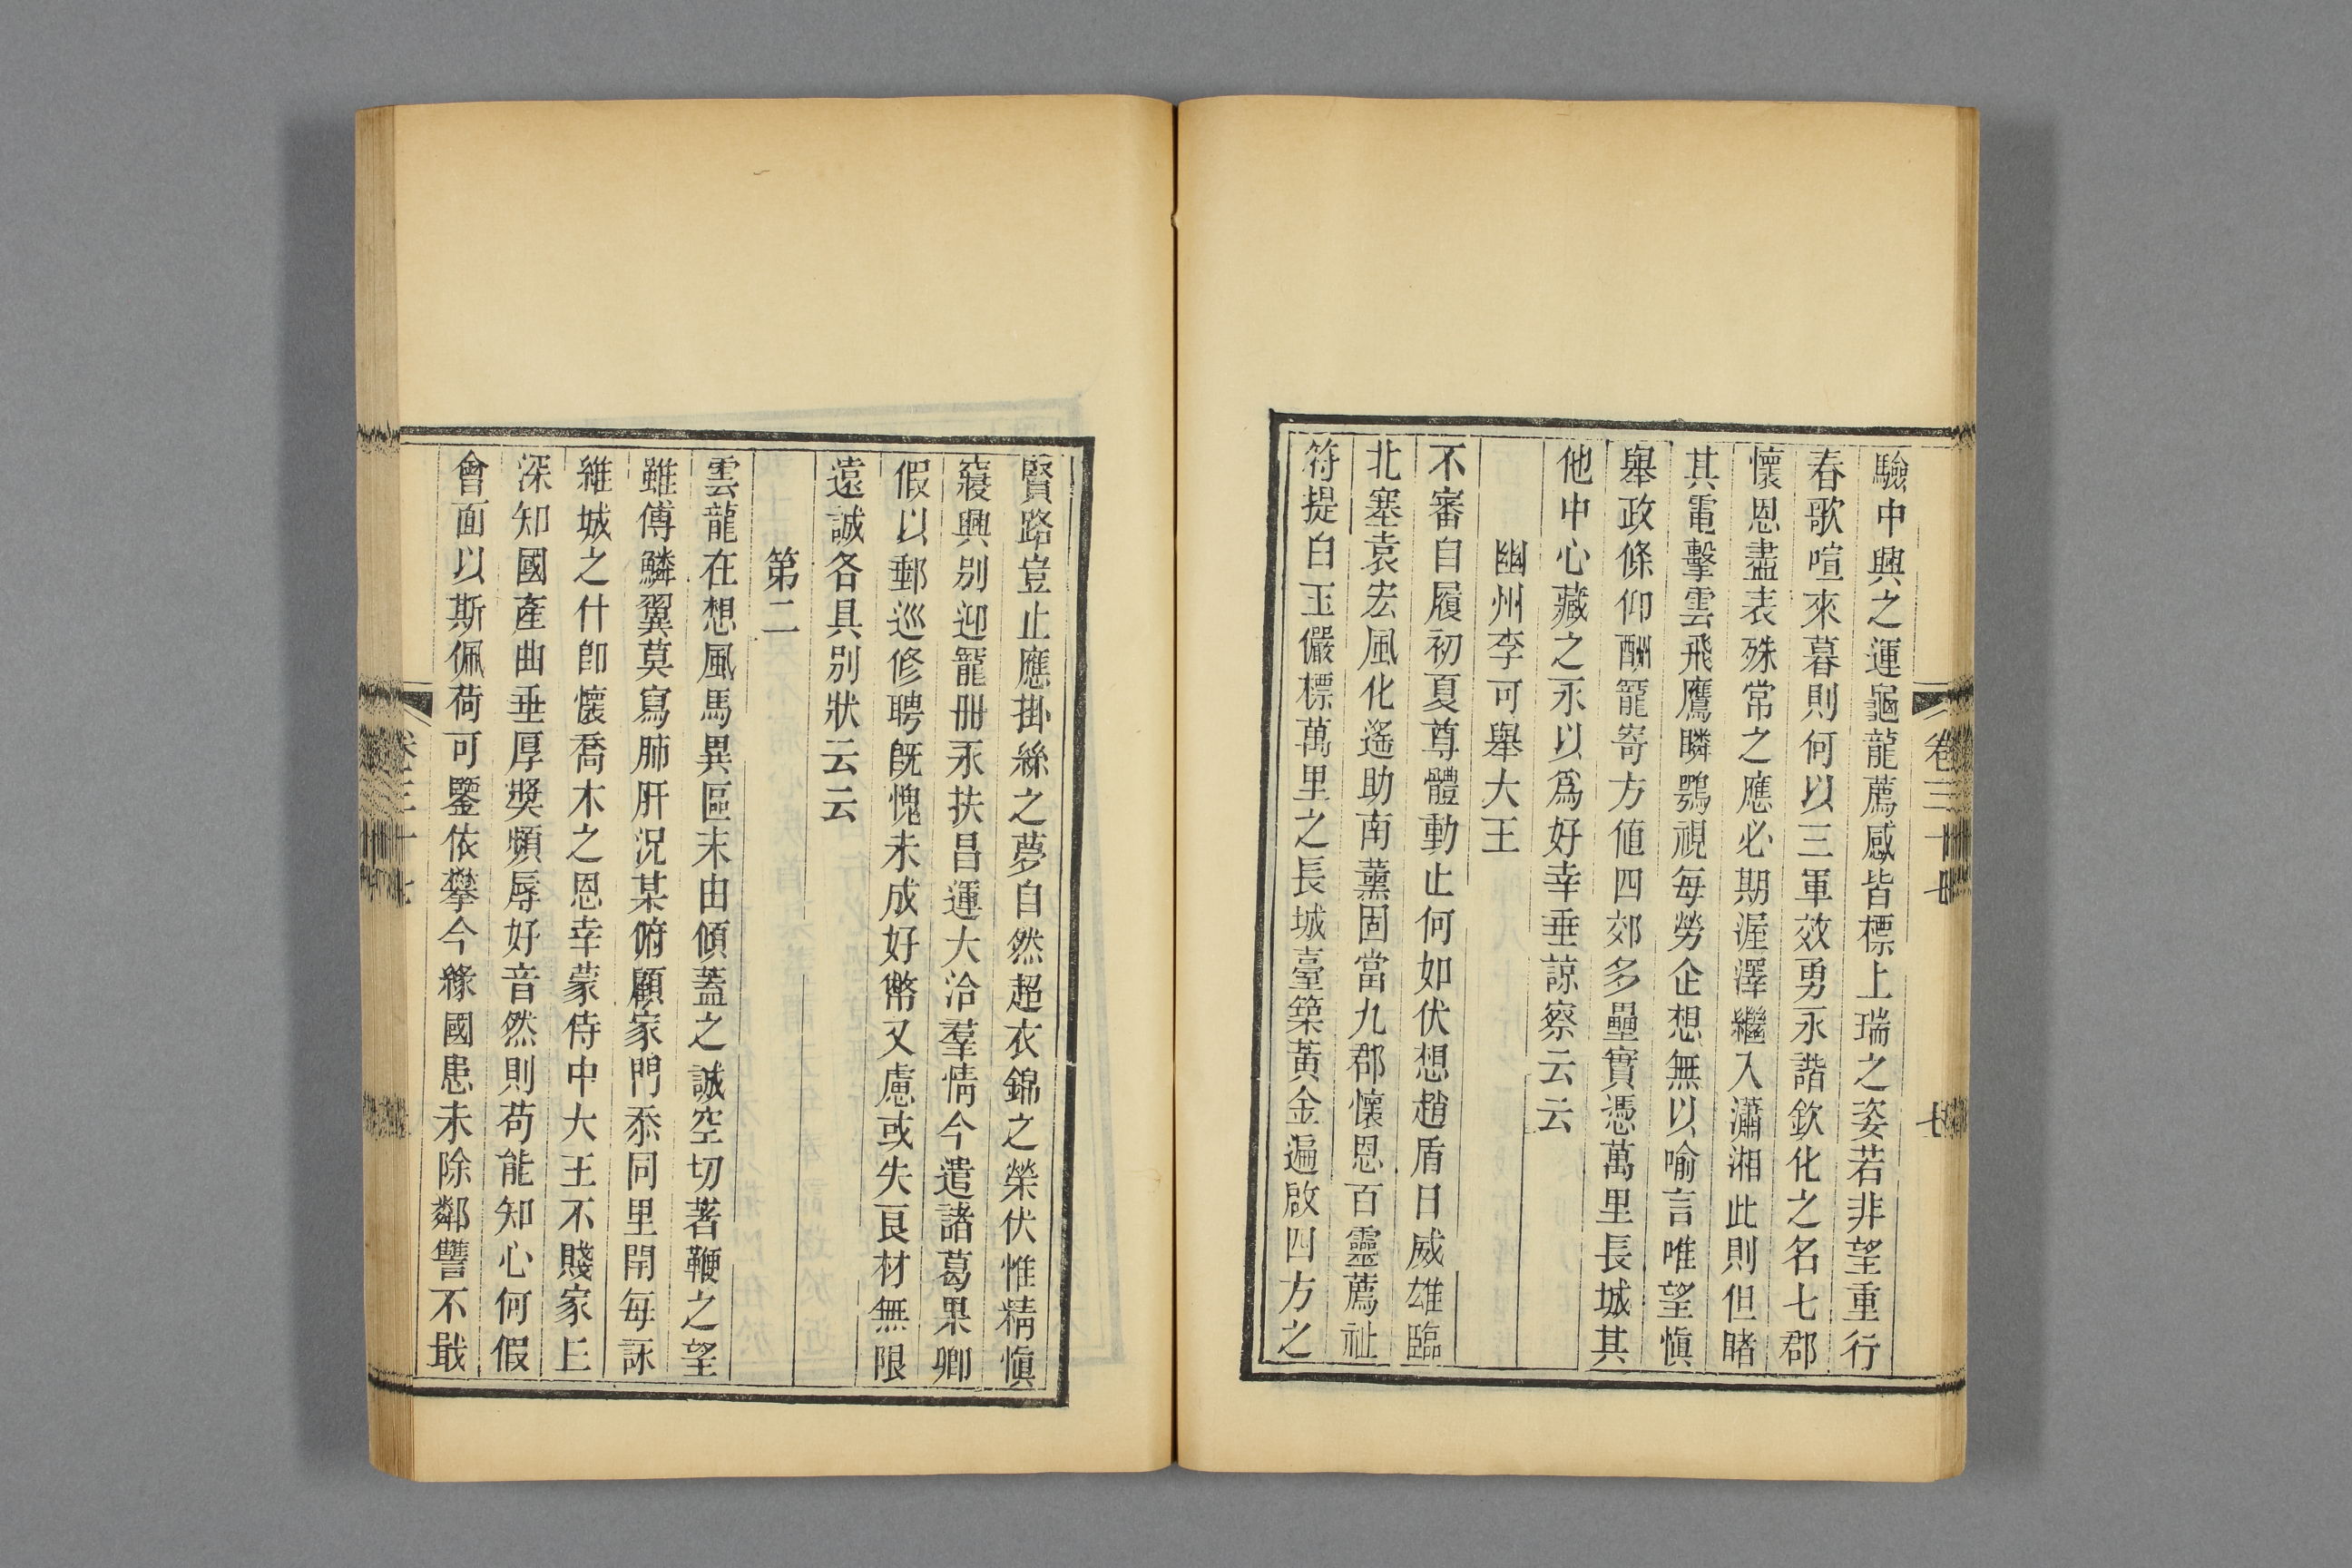 驗中興之運龜龍薦感皆標上瑞之姿若非望重行
春歌喧來暮則何以三軍效勇永諧欽化之名七郡
懷恩盡表殊常之應必期渥澤繼入瀟湘此則但睹
其電擊雲飛鷹瞵鶚視每勞企想無以喻言唯望愼
舉政條仰酬寵寄方値四郊多壘實憑萬里長城其
他中心藏之永以爲好幸垂諒察云云
幽州李可舉大王
不審自履初夏尊體動止何如伏想趙盾日威雄臨
北塞袁宏風化遙助南薰固當九郡懷恩百靈薦祉
符提白玉儼標萬里之長城臺築黃金遍啟四方之
卷三十七
七
賢路豈止應掛絲之夢自然超衣錦之榮伏惟精愼
寢興别迎寵冊永扶昌運大洽羣情今遣諸葛果卿
假以郵巡修聘旣愧未成好幣又慮或失良材無限
遠誠各具别狀云云
第二
雲龍在想風馬異區末由傾蓋之誠空切著鞭之望
雖傅鱗翼莫寫肺肝況某俯顧家門忝同里閈每詠
維城之什卽懷喬木之恩幸蒙侍中大王不賤家丘
深知國產曲垂厚奬頻辱好音然則苟能知心何假
會面以斯佩荷可鑒依攀今緣國患未除鄰讐不戢
卷三十七